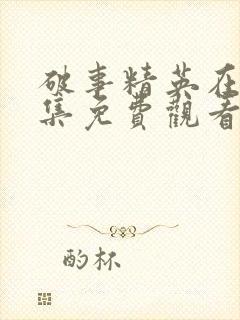 破事精英在
集免費觀看
酌杯